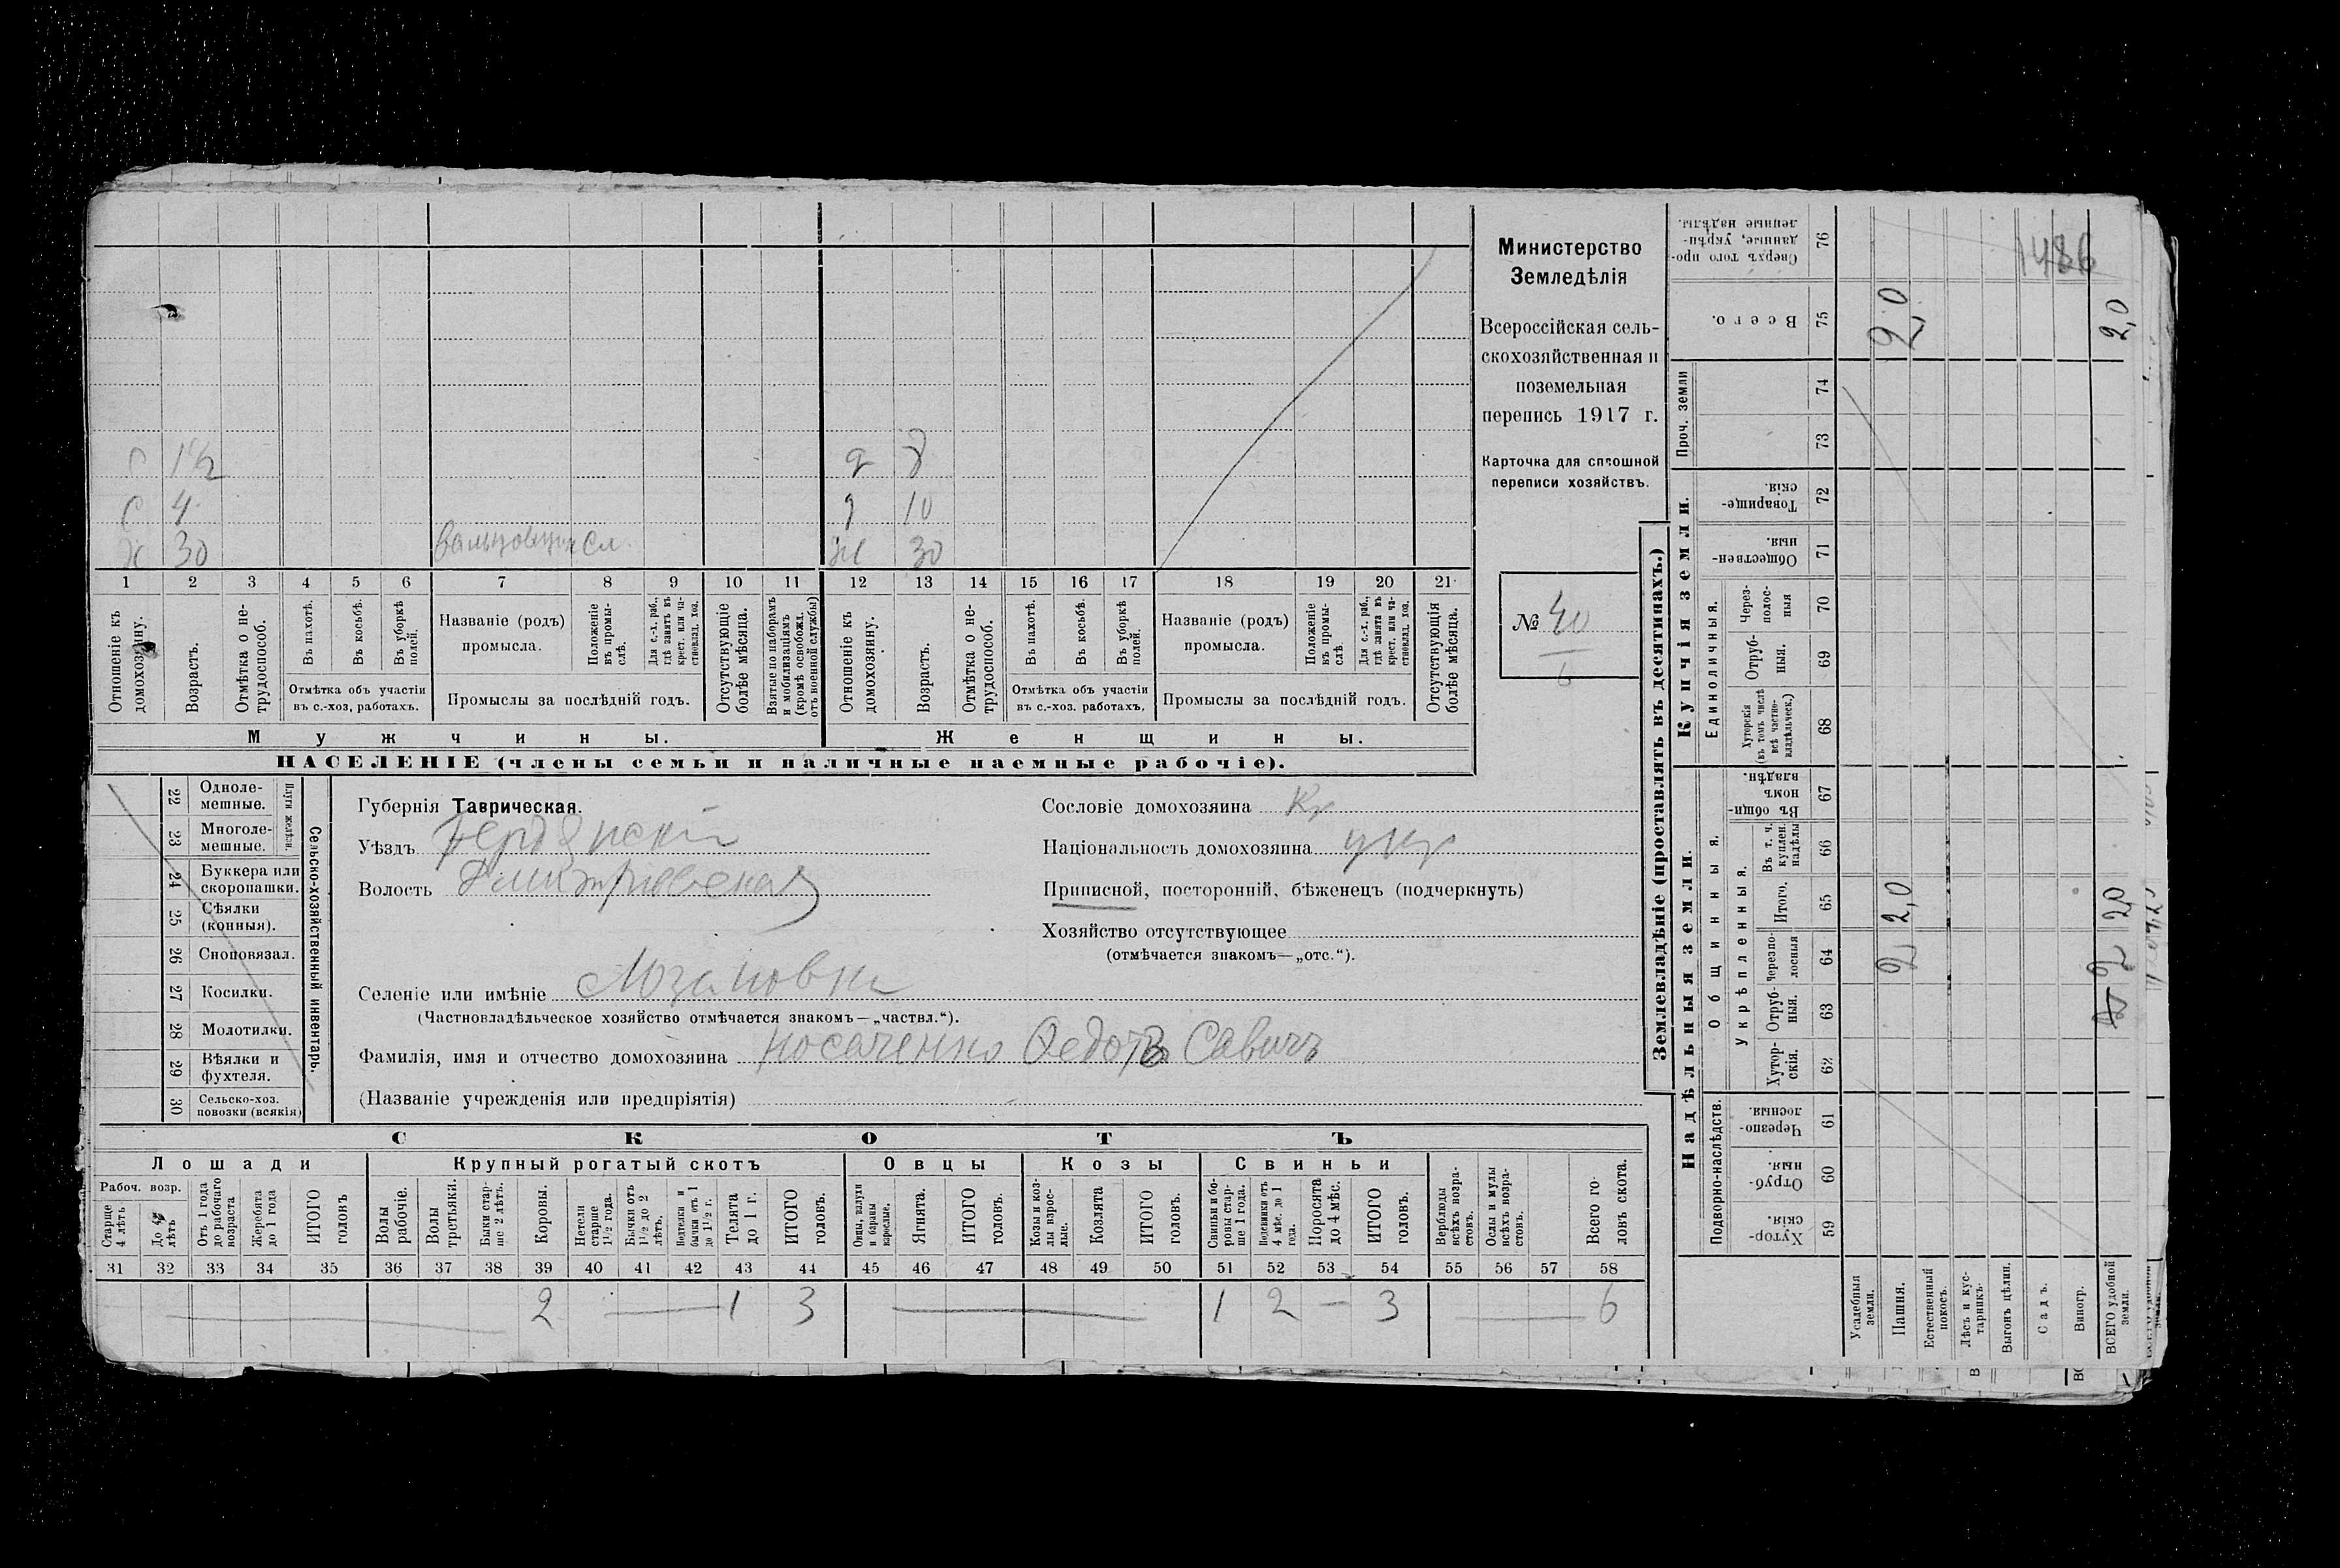 Министерство
Земледѣлія
Всероссійская сель-
скохозяйственная и
поземельная
перепись 1917 г.
Карточка для сплошной
переписи хозяйствъ.
№ 40
6
С 1½
С 4
Х 30 вальцовщик сл.
д 8
д 10
Ж 30
1 2 3 4 5 6 7 8 9 10 11 12 13 14 15 16 17 18 19 20 21
Отношеніе къ домохозяину.
Возрастъ.
Отмѣтка о не-трудоспособ.
Въ пахотѣ.
Въ косьбѣ.
Въ уборкѣ полей.
Отмѣтка объ участіи
въ с.-хоз. работахъ.
Названіе (родъ)
промысла.
Положеніе въ промы-слѣ.
Для с.-х. раб., гдѣ занятъ въ крест. или ча-стновлад. хоз.
Промыслы за послѣдній годъ.
Отсутствующіе болѣе мѣсяца.
Взятые по наборамъ и мобилизаціямъ (кромѣ освобожд. отъ военной службы)
Отношеніе къ домохозяину.
Возрастъ.
Отмѣтка о не-трудоспособ.
Въ пахотѣ.
Въ косьбѣ.
Въ уборкѣ полей.
Отмѣтка объ участіи
въ с.-хоз. работахъ.
Названіе (родъ)
промысла.
Положеніе въ промы-слѣ.
Для с.-х. раб., гдѣ занята въ крест. или ча-стновлад. хоз.
Промыслы за послѣдній годъ.
Отсутствующія болѣе мѣсяца.
Мужчины. Женщины.
НАСЕЛЕНІЕ (члены семьи и наличные наемные рабочіе).
22 Одноле-мешные.
23 Многоле-мешные.
Плуги желѣзн.
24 Буккера или скоропашки.
25 Сѣялки (конныя).
26 Сноповязал.
27 Косилки.
28 Молотилки.
29 Вѣялки и фухтеля.
30 Сельско-хоз. повозки (всякія)
Сельско-хозяйственный инвентарь.
Губернія Таврическая.
Уѣздъ Бердянскій
Волость Дмитріевская
Селеніе или имѣніе Лозановка
(Частновладѣльческое хозяйство отмѣчается знакомъ—„частвл.“).
Фамилія, имя и отчество домохозяина Носаченко Федотъ Савичъ
(Названіе учрежденія или предпріятія)
Сословіе домохозяина Кр
Національность домохозяина укр
Приписной, посторонній, бѣженецъ (подчеркнуть)
Хозяйство отсутствующее
(отмѣчается знакомъ—„отс.“).
СКОТЪ
Лошади Крупный рогатый скотъ Овцы Козы Свиньи
Рабоч. возр.
Старще 4 лѣтъ
До 4 лѣтъ
Отъ 1 года до рабочаго возраста
Жеребята до 1 года
ИТОГО головъ
Волы рабочіе.
Волы третьяки.
Быки стар-ше 2 лѣтъ.
Коровы.
Нетели старше 1½ года.
Бычки отъ 1½ до 2 лѣтъ.
Нетелки и бычки отъ 1 до 1½ г.
Телята до 1 г.
ИТОГО головъ.
Овцы, валухи и бараны взрослые.
Ягнята.
ИТОГО головъ.
Козы и коз-лы взрос-лые.
Козлята
ИТОГО головъ.
Свиньи и бо-ровы стар-ше 1 года.
Подсвинки отъ 4 мѣс. до 1 года.
Поросята до 4 мѣс.
ИТОГО головъ.
Верблюды всѣхъ возра-стовъ.
Ослы и мулы всѣхъ возра-стовъ.
Всего го-ловъ скота.
31 32 33 34 35 36 37 38 39 40 41 42 43 44 45 46 47 48 49 50 51 52 53 54 55 56 57 58
2 1 3 1 2 — 3 6
Землевладѣніе (проставлять въ десятинахъ.)
Надѣльныя земли. Купчія земли.
Подворно-наслѣдств.
Общинныя.
Укрѣпленныя.
Единоличныя.
Проч. земли
59 Хутор-скія.
60 Отруб-ныя.
61 Черезпо-лосныя.
62 Хутор-скія.
63 Отруб-ныя.
64 Черезпо-лосныя
65 Итого.
66 Въ т. ч. куплен. надѣлы
67 Въ общи-номъ владѣн.
68 Хуторскія (въ томъ числѣ всѣ частно-владѣльческ.)
69 Отруб-ныя.
70 Через-полос-ныя
71 Обществен-ныя.
72 Товарище-скія.
73
74
75 Всего.
76 Сверхъ того про-данные, укрѣп-ленные надѣлы.
Усадебныя земли.
Пашня. 2 2,0 2,0
Естественный покосъ.
Лѣсъ и кус-тарникъ.
Выгонъ цѣлин.
Садъ.
Виногр.
ВСЕГО удобной земли. 2 2,0 2,0
1486